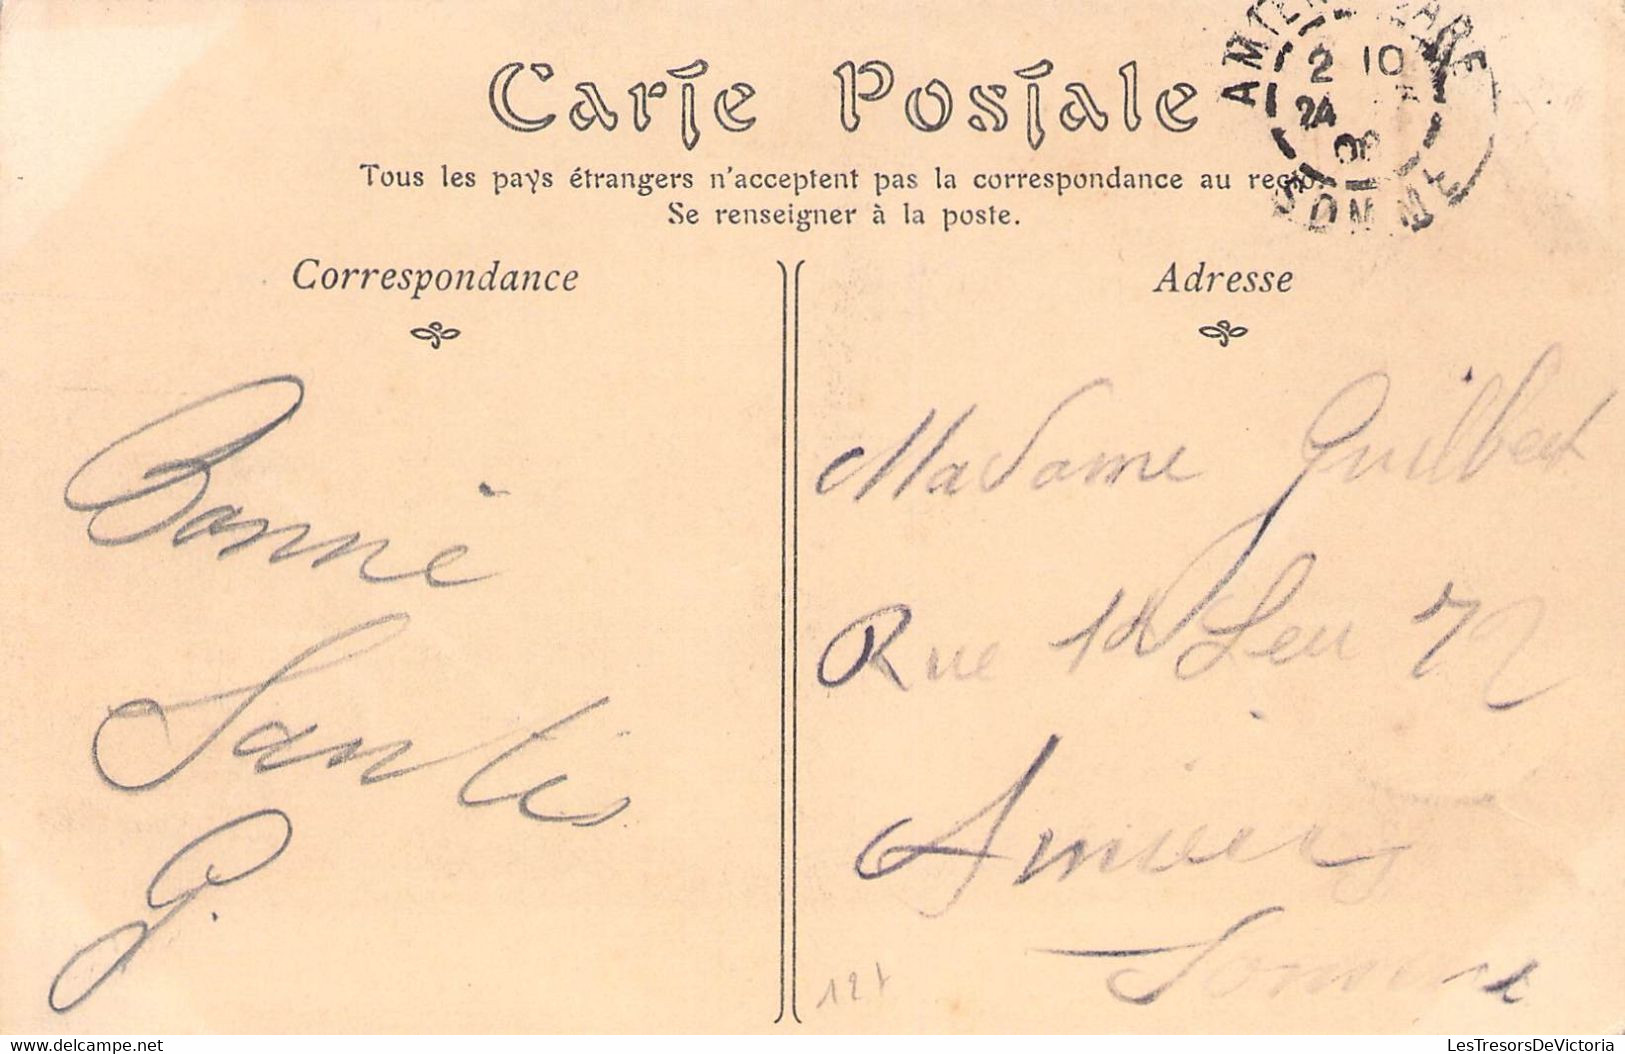 Carte Postale
Tous les pays étrangers n'acceptent pas la correspondance au recto.
Se renseigner à la poste.
AMIENS GARE
2 10
24
08
SOMME
Correspondance
Bonne
Santés
G.
Adresse
Madame Guilbert
Rue Leu 72
Amiens
Somme
12f
delcampe.net
LesTresorsDeVictoria